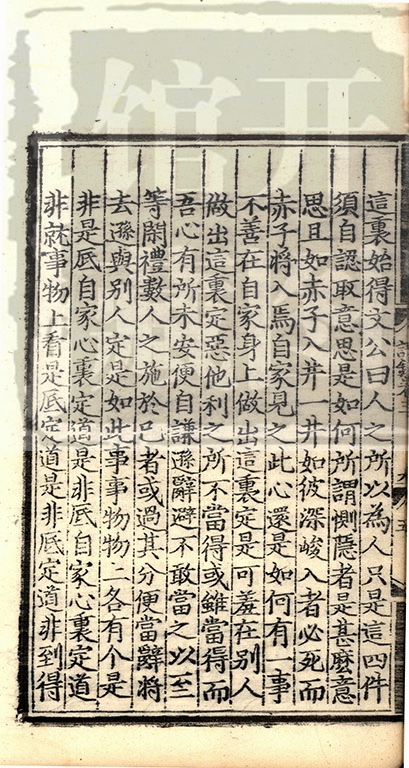 這裏始得文公曰人之所以為人只是這四件
須自認取意思是如何所謂惻隱者是甚麼意
思且如赤子入井一井如彼深峻入者必死而
赤子將入焉自家見之此心還是如何有一事
不善在自家身上做出這裏定是可羞在別人
做出這裏定惡他利之所不當得或雖當得而
吾心有所未安便自謙遜辭避不敢當之以至
等閑禮數人之施於己者或過其分便當辭將
去遜與別人定是如此事事物物二各有个是
非是底自家心裏定道是非底自家心裏定道
非就事物上看是底定道是非底定道非到得